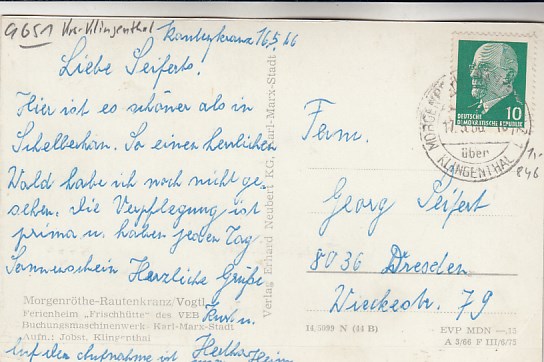 9651 Krs. Klingenthal
Rautenkranz 16.5.66
Liebe Seiferts!
Hier ist es schöner als in
Schellerhau. So einen herrlichen
Wald habe ich noch nicht ge-
sehen. Die Verpflegung ist
prima u. haben jeden Tag
Sonnenschein Herzliche Grüße
Kurt u.
Morgenröthe-Rautenkranz/Vogtl.
Ferienheim „Frischhütte" des VEB
Buchungsmaschinenwerk Karl-Marx-Stadt
Aufn.: Jobst, Klingenthal
Auf der Aufnahme ist Heim
Verlag Erhard Neubert KG, Karl-Marx-Stadt
10
DEUTSCHE
DEMOKRATISCHE REPUBLIK
MORGENRÖTHE-
über
KLINGENTHAL
1,-
846
Fam.
Georg Seifert
8036 Dresden
Wieckestr. 79
14,5099 N (44 B)
EVP MDN —,15
A 3/66 F III/6/73